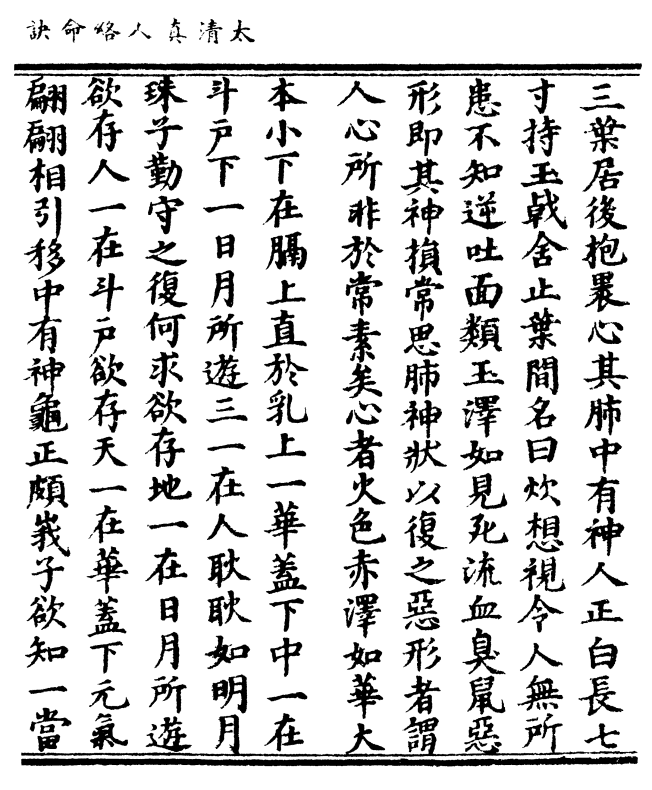 太清真人絡命訣
三葉居後抱裹心其肺中有神人正白長七
寸持玉戟舍止葉間名曰炊想視令人無所
患不知逆吐面類玉澤如見死流血臭鼠惡
形即其神損常思肺神狀以復之惡形者謂
人心所非於常素矣心者火色赤澤如華大
本小下在膈上直於乳上一華蓋下中一在
斗戶下一日月所遊三一在人耿耿如明月
珠子勤守之復何求欲存地一在日月所遊
欲存人一在斗戶欲存天一在華蓋下元氣
翩翩相引移中有神龜正頗峩子欲知一當